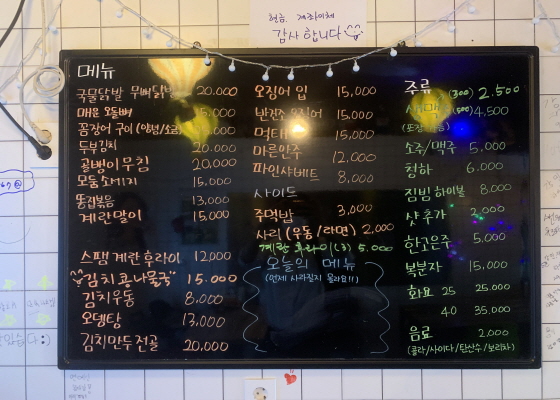 현금 계좌이체
감사합니다
메뉴
국물닭발 무뼈닭발 20.000
매운 오돌뼈 5.000
꼼장어 구이 (양념/소금)
두부김치 20.000
골뱅이무침 20.000
모둠소세지 15.000
똥집볶음 13,000
계란말이 15,000
스팸 계란후라이 12,000
김치콩나물국 15.000
김치우동 8.000
오뎅탕 13,000
김치만두전골 20,000
오징어 입 15,000
반건조 오징어 15,000
먹태 15,000
마른안주 12.000
파인샤베트 8,000
사이드
주먹밥 3,000
사리 (우동/라면) 2,000
계란 후라이 (3) 5.000
오늘의 메뉴
(언제 사라질지 몰라요!!)
주류
(300) 2.500
생맥주 (500) 4,500
소주/맥주 5,000
청하 6.000
짐빔 하이볼 8,000
샷 추가 2,000
한라토닉 5,000
복분자 15,000
화요 25 25.000
40 35,000
음료 2,000
(콜라/사이다/탄산수/보리차)